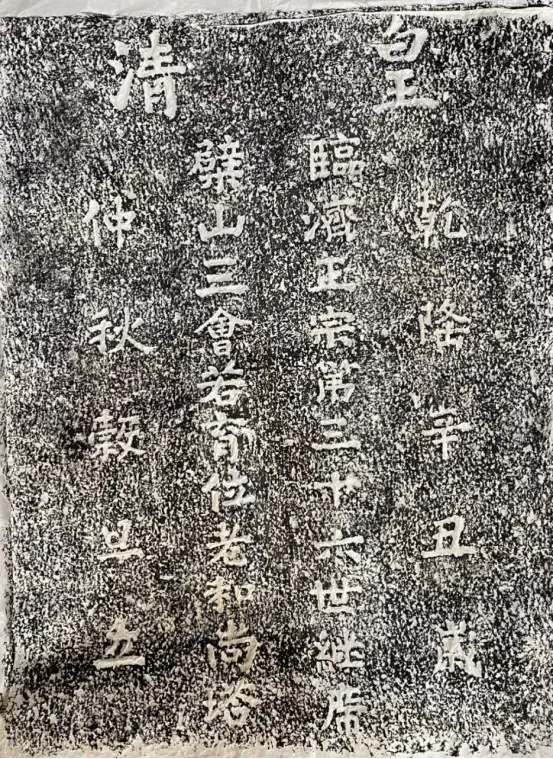 皇清
乾隆辛丑歲
臨濟正宗第三十六世継席
檗山三會若育位老和尚塔
仲秋穀旦立